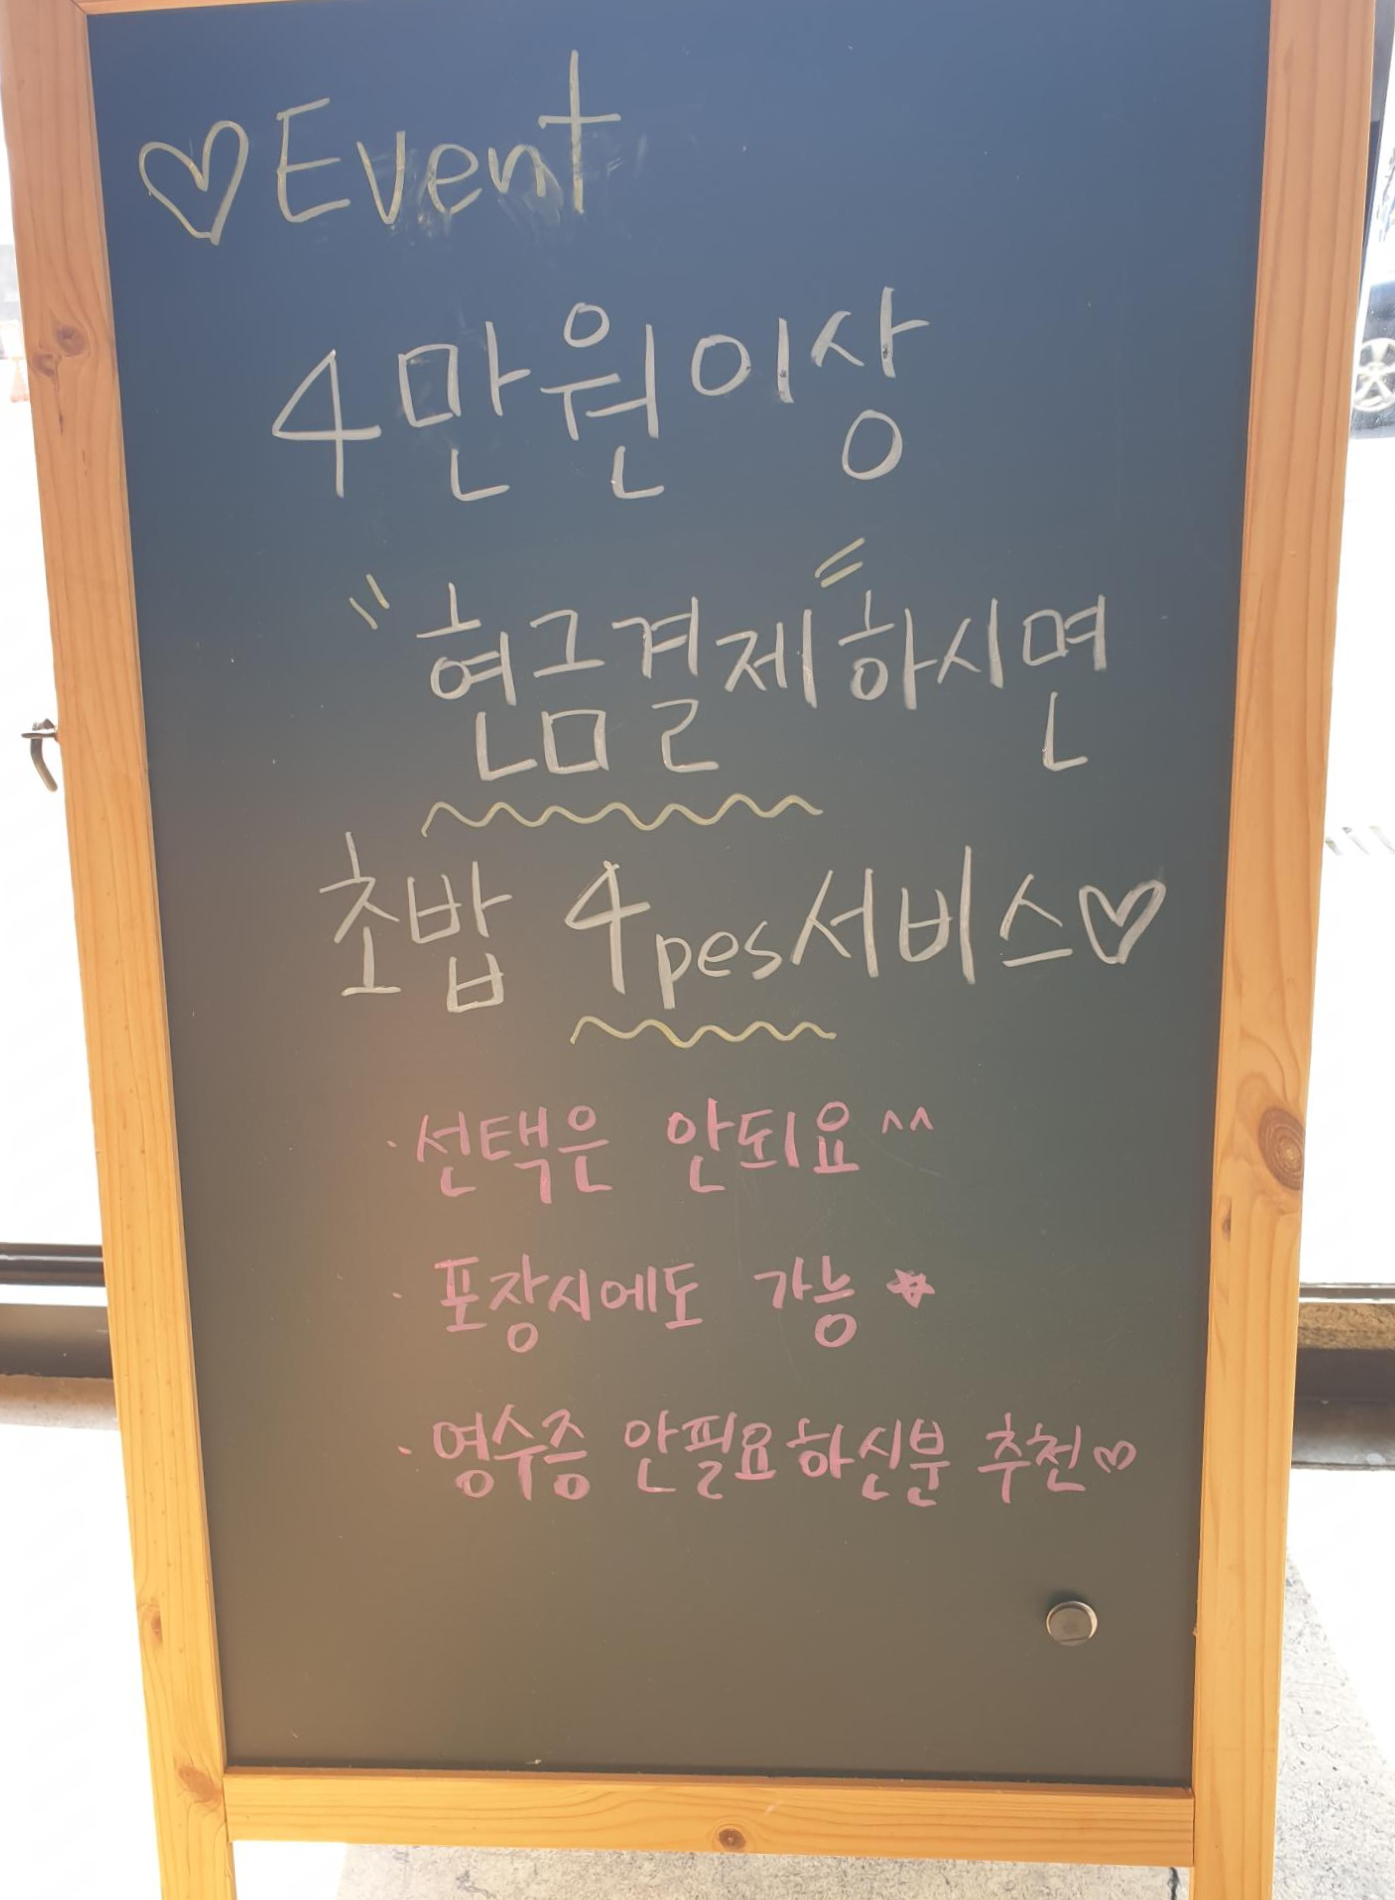 ♡Event
4만원이상
"현금결제"하시면
초밥 4pes서비스♡
·선택은 안되요^^
·포장시에도 가능★
·영수증 안필요하신분 추천♡